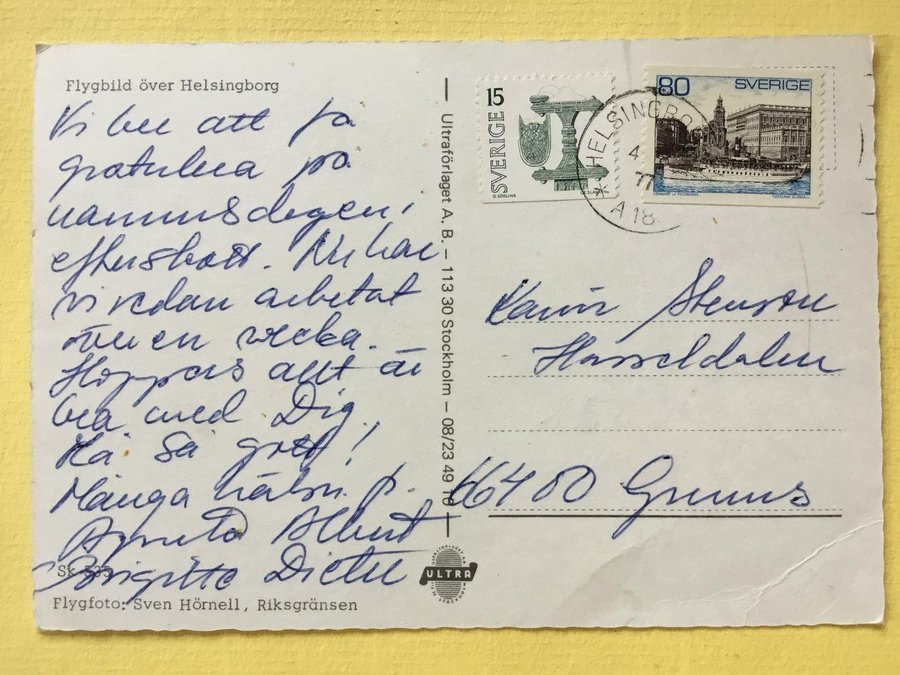 Flygbild över Helsingborg
Vi ber att få
gratulera på
namnsdagen,
efteråt. Nu har
vi redan arbetat
över en vecka.
Hoppas allt är
bra med Dig.
Må så gott!
Många hälsn. fr.
Agneta Albert
Brigitte Dieter
Sk 595
Flygfoto: Sven Hörnell, Riksgränsen
Ultraförlaget A. B. – 113 30 Stockholm – 08/23 49 10
ULTRA
15
SVERIGE
80 SVERIGE
HELSINGBO
4
77
A 18
Karin Stensson
Hasseldalen
66400 Grums